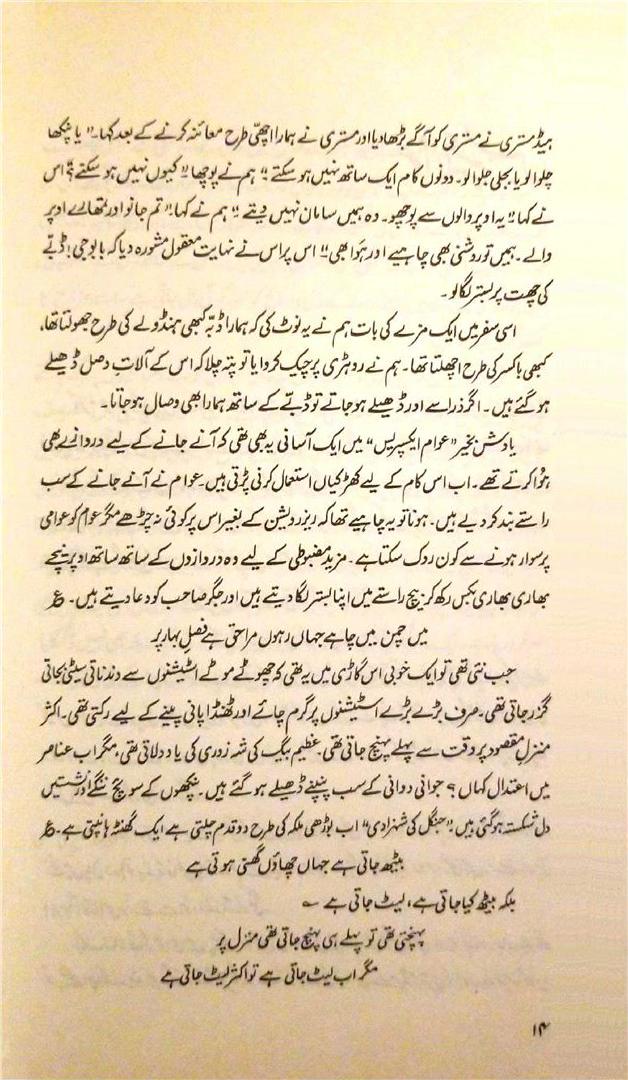 ہیڈ مستری نے مستری کو آگے بڑھا دیا اور مستری نے ہمارا اچھی طرح معائنہ کرنے کے بعد کہا۔ "یا پنکھا
چلوا لو یا بجلی جلوا لو۔ دونوں کام ایک ساتھ نہیں ہو سکتے۔" ہم نے پوچھا "کیوں نہیں ہو سکتے؟" اس
نے کہا "یہ اوپر والوں سے پوچھو۔ وہ ہمیں سامان نہیں دیتے۔" ہم نے کہا "تم جانو اور تمھارے اوپر
والے۔ ہمیں تو روشنی بھی چاہیے اور ہَوا بھی۔" اس پر اس نے نہایت معقول مشورہ دیا کہ بابو جی! ڈبّے
کی چھت پر بستر لگا لو۔
اسی سفر میں ایک مزے کی بات ہم نے یہ نوٹ کی کہ ہمارا ڈبّہ کبھی ہنڈولے کی طرح جھولتا تھا،
کبھی باکسر کی طرح اچھلتا تھا۔ ہم نے روہڑی پر چیک کروایا تو پتہ چلا کہ اس کے آلاتِ وصل ڈھیلے
ہو گئے ہیں۔ اگر ذرا سے اور ڈھیلے ہو جاتے تو ڈبّے کے ساتھ ہمارا بھی وصال ہو جاتا۔
یادش بخیر "عوام ایکسپریس" میں ایک آسانی یہ بھی تھی کہ آنے جانے کے لیے دروازے بھی
ہُوا کرتے تھے۔ اب اس کام کے لیے کھڑکیاں استعمال کرنی پڑتی ہیں۔ عوام نے آنے جانے کے سب
راستے بند کر دیے ہیں۔ ہونا تو یہ چاہیے تھا کہ ریزرویشن کے بغیر اس پر کوئی نہ چڑھے مگر عوام کو عوامی
پر سوار ہونے سے کون روک سکتا ہے۔ مزید مضبوطی کے لیے وہ دروازوں کے ساتھ ساتھ اوپر نیچے
بھاری بھاری بکس رکھ کر بیچ راستے میں اپنا بستر لگا دیتے ہیں اور جگر صاحب کو دعا دیتے ہیں۔ ع
میں چمن میں چاہے جہاں رہوں مرا حق ہے فصلِ بہار پر
جب نئی تھی تو ایک خوبی اس گاڑی میں یہ تھی کہ چھوٹے موٹے اسٹیشنوں سے دندناتی سیٹی بجاتی
گزر جاتی تھی۔ صرف بڑے بڑے اسٹیشنوں پر گرم چائے اور ٹھنڈا پانی پینے کے لیے رکتی تھی۔ اکثر
منزلِ مقصود پر وقت سے پہلے پہنچ جاتی تھی۔ عظیم بیگ کی شہ زوری کی یاد دلاتی تھی، مگر اب عناصر
میں اعتدال کہاں؟ جوانی دوانی کے سب پنپنے ڈھیلے ہو گئے ہیں۔ پنکھوں کے سوئچ ننگے اور نشستیں
دل شکستہ ہو گئی ہیں۔ "جنگل کی شہزادی" اب بوڑھی ملکہ کی طرح دو قدم چلتی ہے ایک گھنٹہ ہانپتی ہے۔ ع
بیٹھ جاتی ہے جہاں چھاؤں گھنی ہوتی ہے
بلکہ بیٹھ کیا جاتی ہے، لیٹ جاتی ہے ؎
پہنچتی تھی تو پہلے ہی پہنچ جاتی تھی منزل پر
مگر اب لیٹ جاتی ہے تو اکثر لیٹ جاتی ہے
۱۴